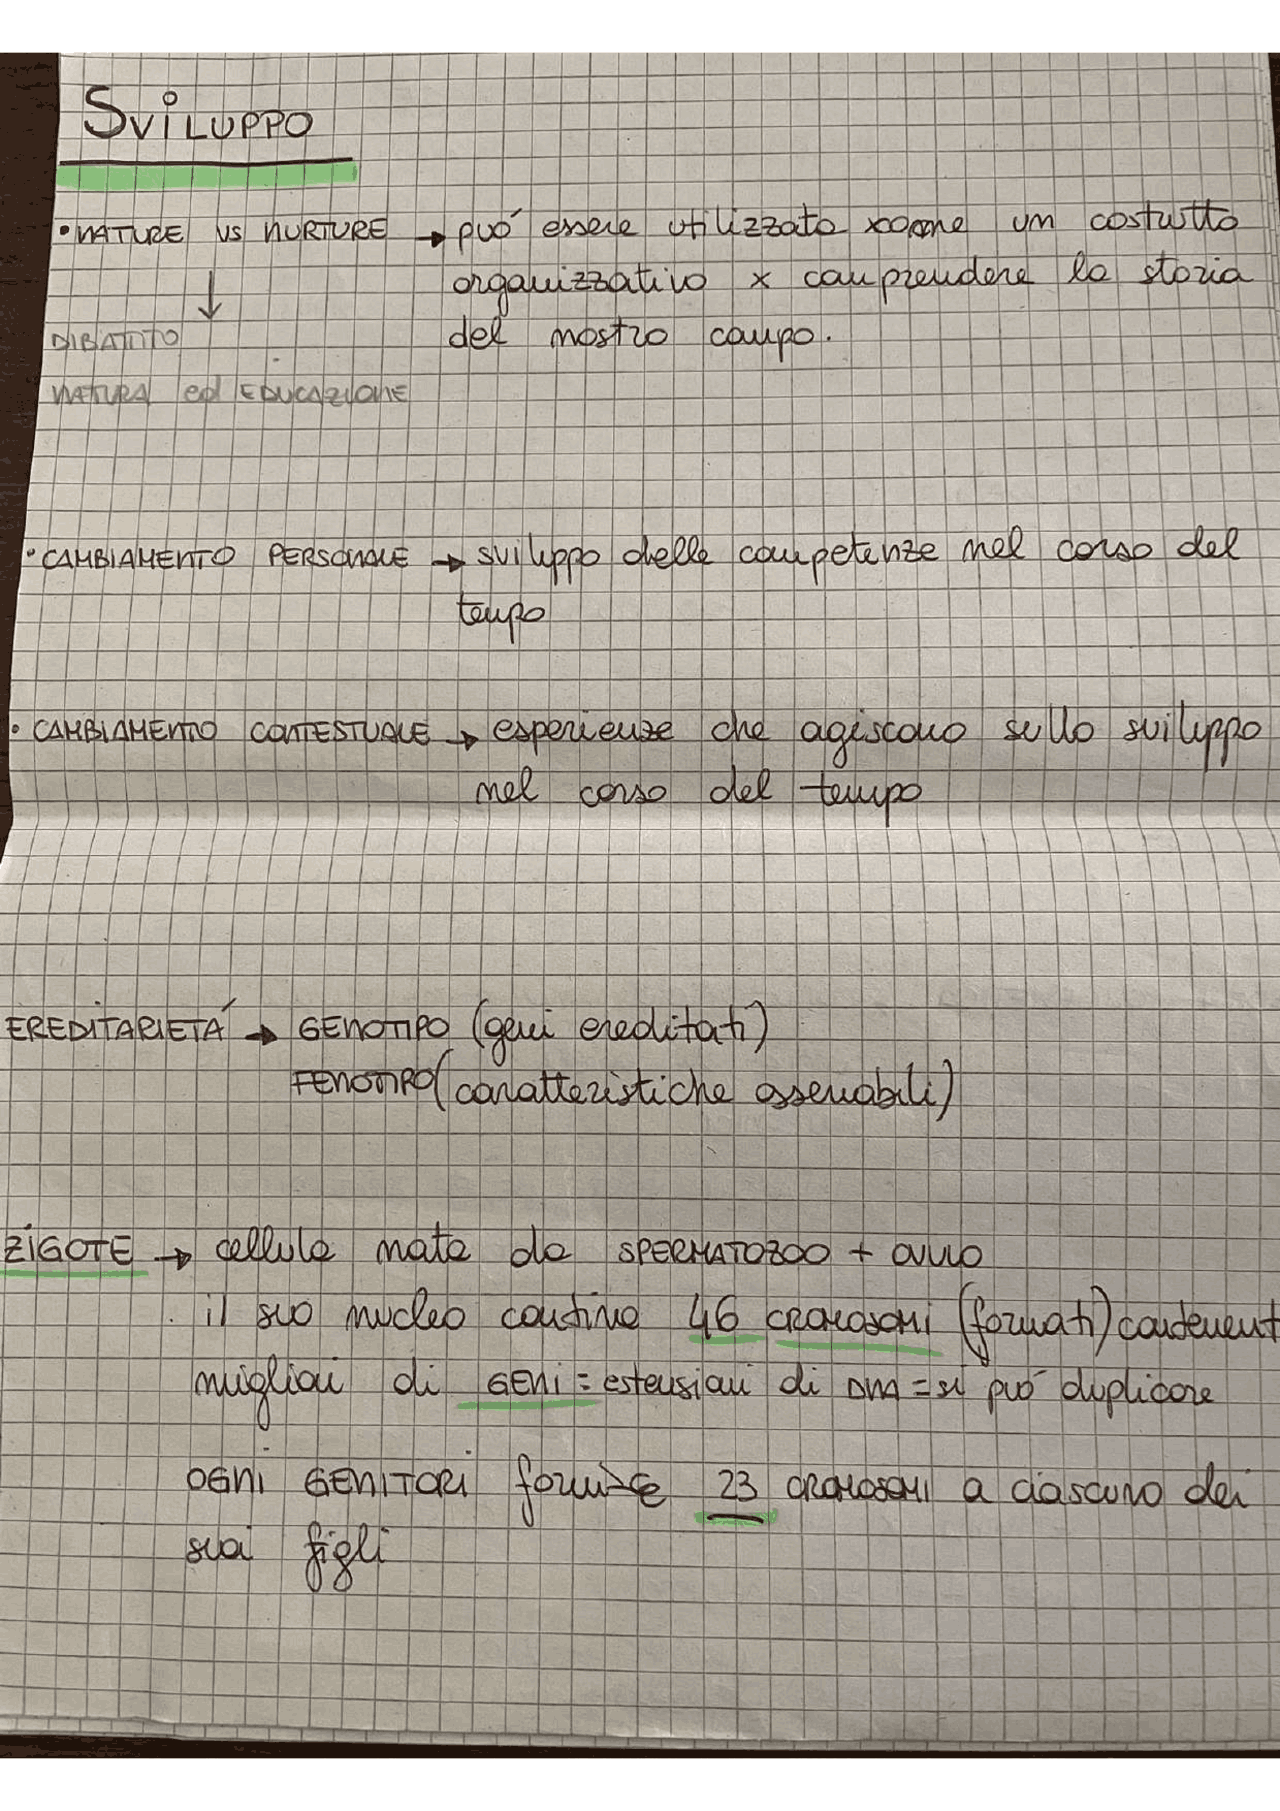 SVILUPPO
• NATURE VS NURTURE → puó essere utilizzato come un costrutto
organizzativo x comprendere la storia
del nostro campo.
↓
DIBATTITO
NATURA ed EDUCAZIONE
• CAMBIAMENTO PERSONALE → sviluppo delle competenze nel corso del
tempo
• CAMBIAMENTO CONTESTUALE → esperienze che agiscono sullo sviluppo
nel corso del tempo
EREDITARIETÁ → GENOTIPO (geni ereditati)
FENOTIPO (caratteristiche osservabili)
ZIGOTE → cellula nata da SPERMATOZOO + ovulo
il suo nucleo contine 46 CROMOSOMI (formati) contenent
migliai di GENI = estensioni di DNA = si puó duplicare
OGNI GENITORI fornisce 23 CROMOSOMI a ciascuno dei
suoi figli